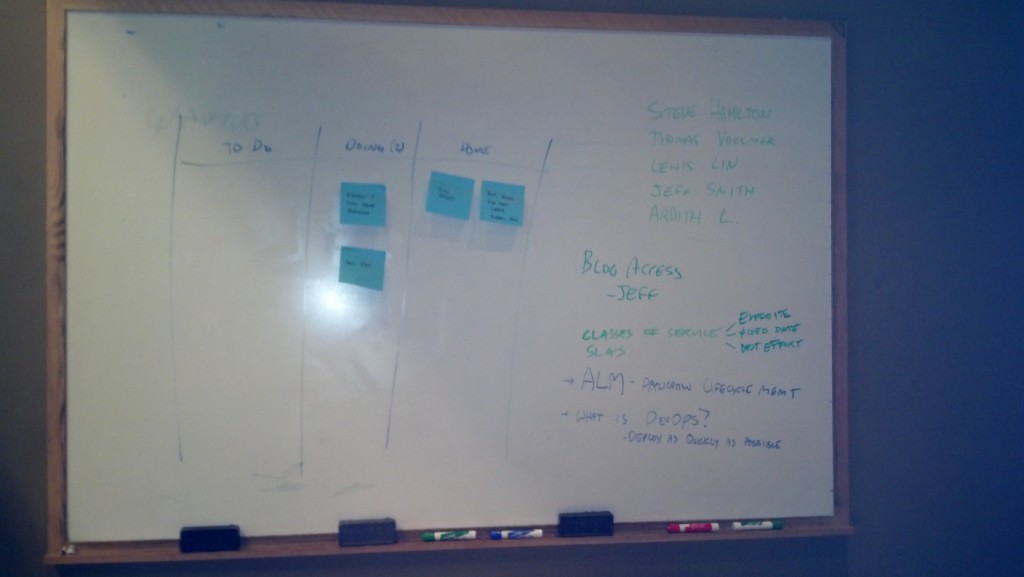 TO DO
DOING (2)
DONE
STEVE HAMILTON
THOMAS VOLLMER
LEWIS LIN
JEFF SMITH
ARDITH L.
BLOG ACCESS
- JEFF
CLASSES OF SERVICE
EXPEDITE
FIXED DATE
BEST EFFORT
SLA'S
→ ALM - APPLICATION LIFECYCLE MGMT
- WHAT IS DEVOPS?
- DEPLOY AS QUICKLY AS POSSIBLE